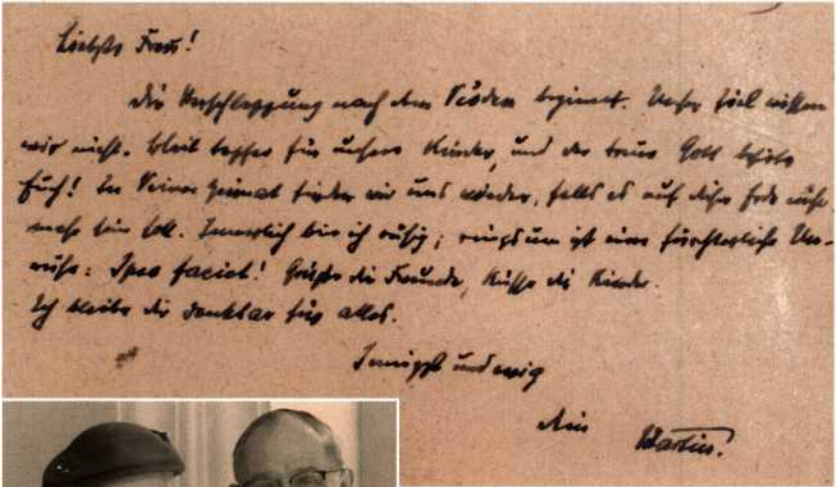 Liebste Frau!
Die Verschleppung nach dem Süden beginnt. Unser Ziel wissen
wir nicht. Bleib tapfer für unsere Kinder, und der treue Gott behüte
Euch! In Seiner Heimat finden wir uns wieder, falls es auf dieser Erde nicht
mehr sein soll. Innerlich bin ich ruhig; ringsum ist eine fürchterliche Un-
ruhe: Ipse faciet! Grüße die Freunde, küsse die Kinder.
Ich bleibe dir dankbar für alles.
Innigst und ewig
dein Martin.